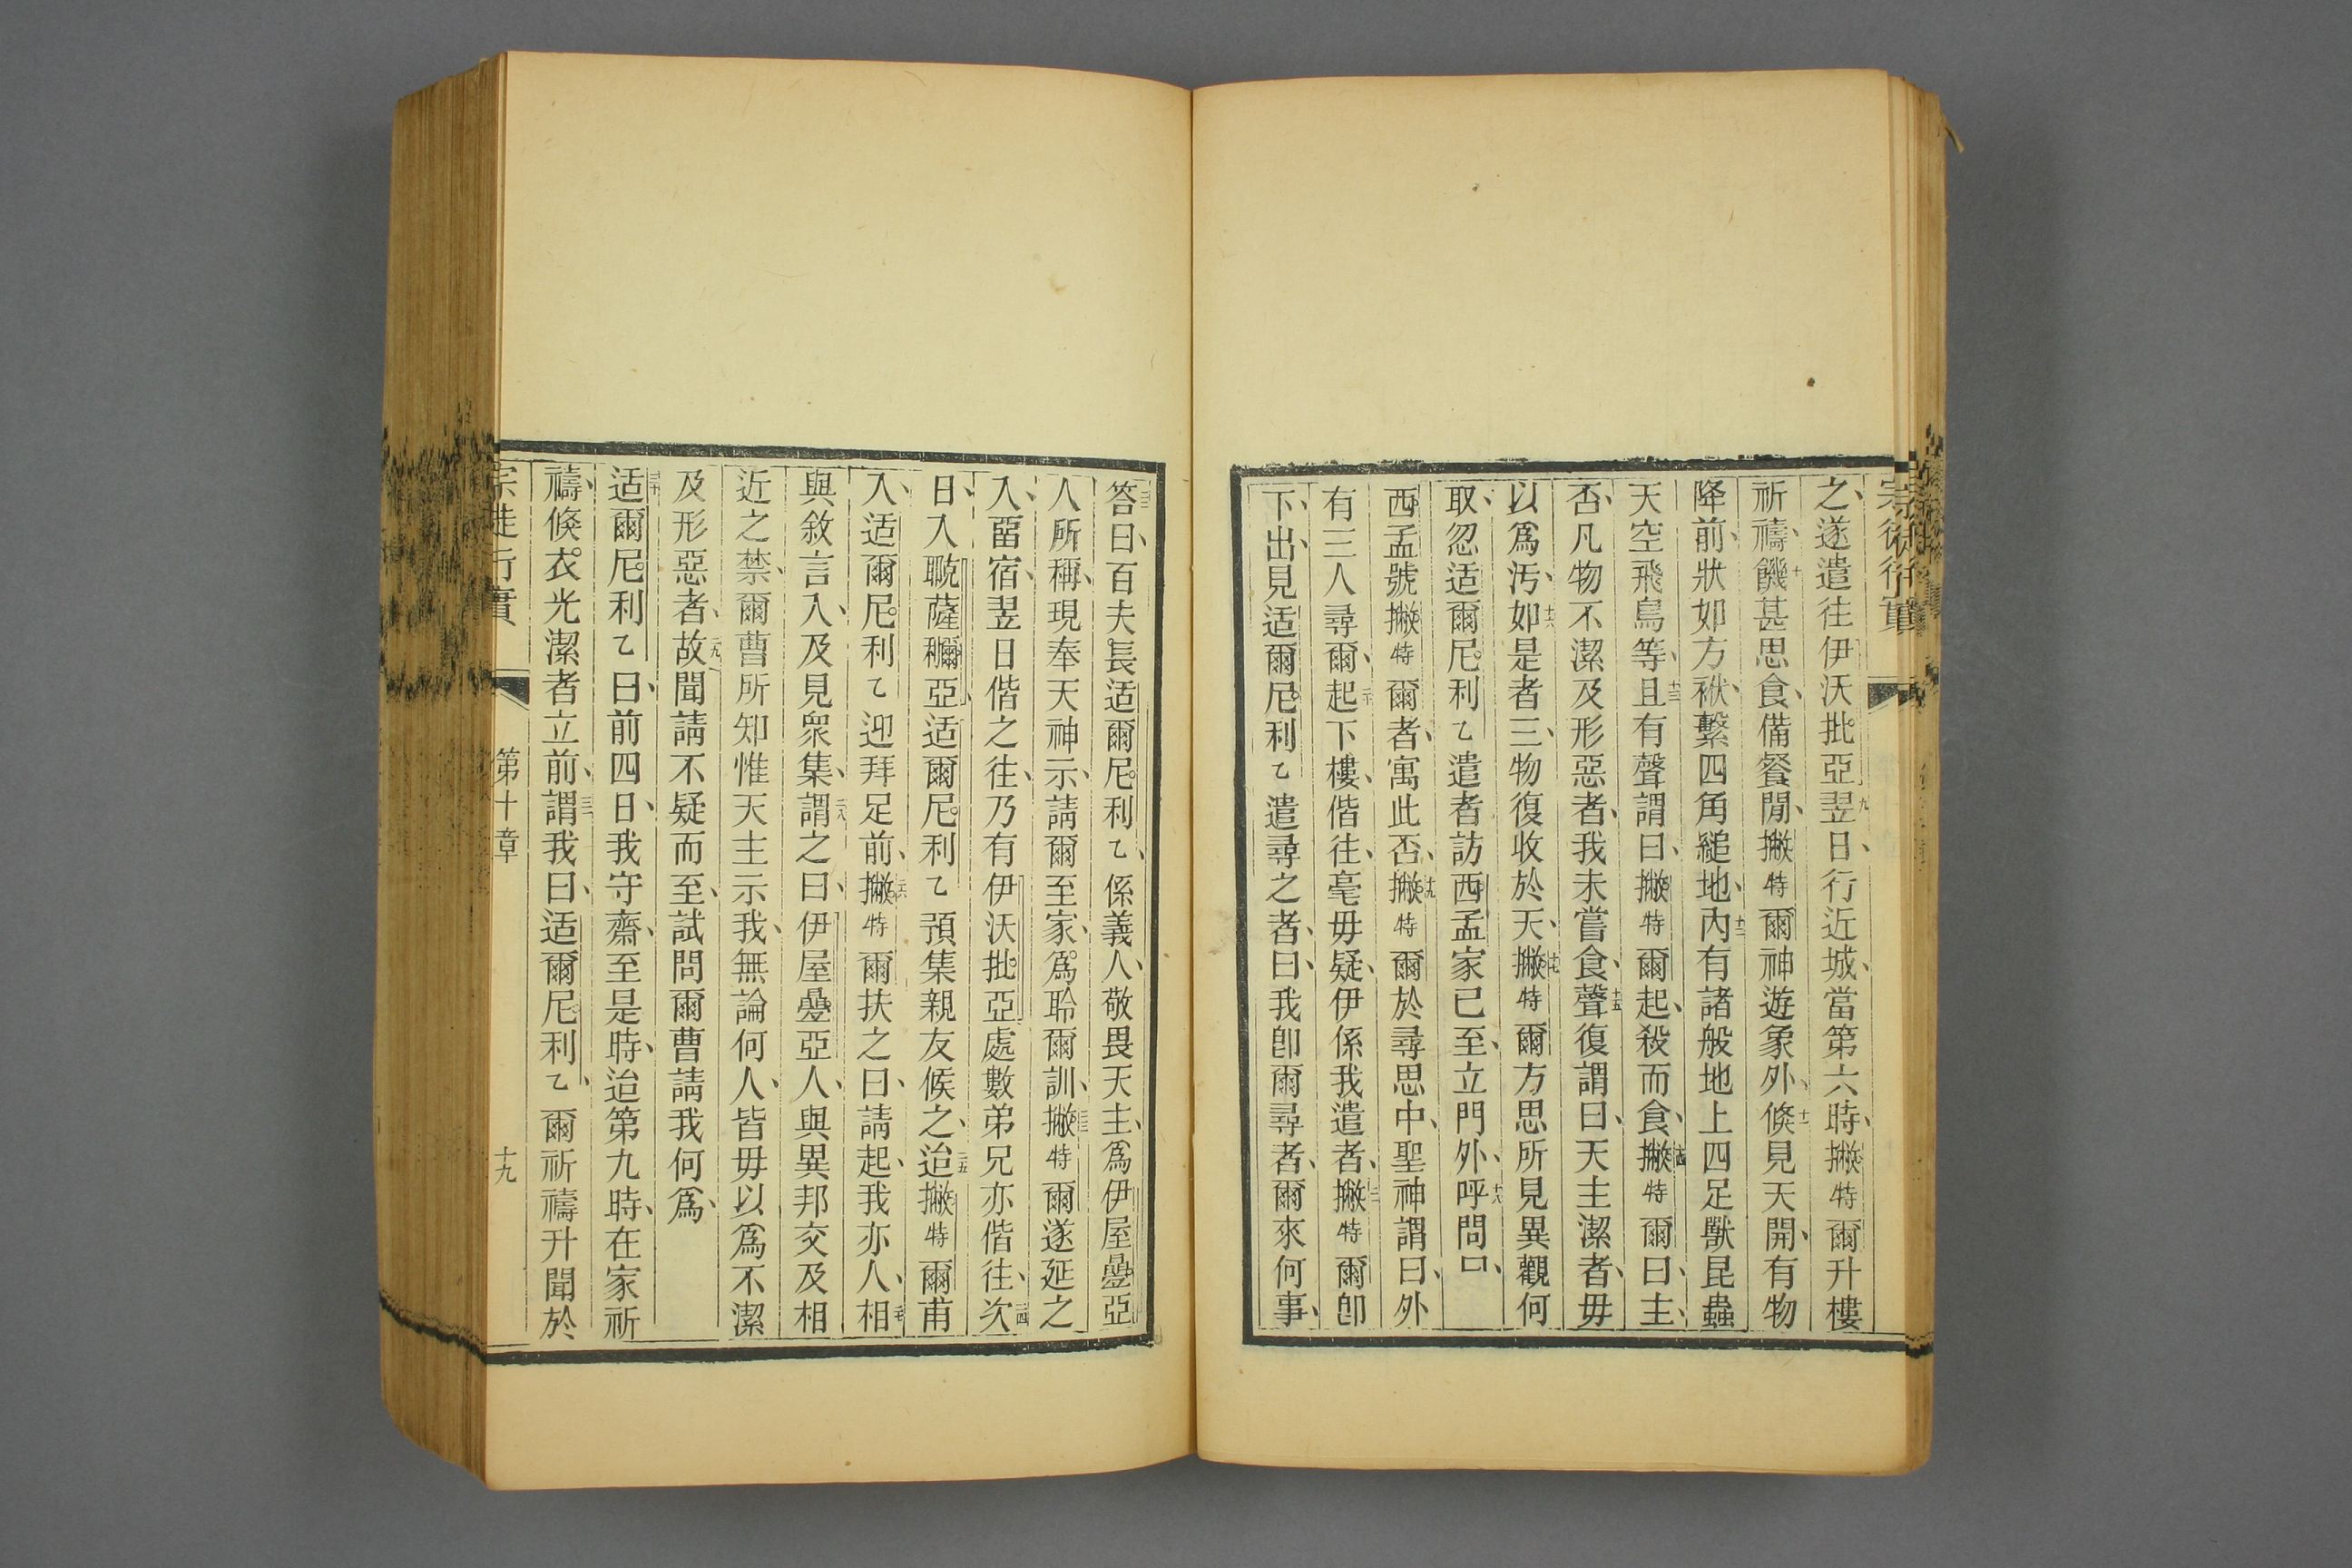 宗徒行實
之、遂遣往伊沃批亞九翌日、行近城、當第六時、撇特爾升樓
祈禱、十饑甚思食、備餐閒、撇特爾神遊象外、十一倏見天開、有物
降前、狀如方袱、繫四角縋地、十二內有諸般地上四足獸昆蟲
天空飛鳥等、十三且有聲謂曰、撇特爾起、殺而食、十四撇特爾曰、主、
否、凡物不潔及形惡者、我未嘗食、十五聲復謂曰、天主潔者、毋
以爲汚、十六如是者三、物復收於天、十七撇特爾方思所見異觀何
取、忽适爾尼利乙遣者訪西孟家已至、立門外、十八呼問曰、
西孟號撇特爾者、寓此否、十九撇特爾於尋思中、聖神謂曰、外
有三人尋爾、二十起下樓、偕往、毫毋疑、伊係我遣者、二一撇特爾卽
下、出見适爾尼利乙遣尋之者、曰、我卽爾尋者、爾來何事、
二二答曰、百夫長适爾尼利乙、係義人、敬畏天主、爲伊屋疊亞
人所稱、現奉天神示、請爾至家、爲聆爾訓、二三撇特爾遂延之
入、畱宿、翌日偕之往、乃有伊沃批亞處數弟兄亦偕往、二四次
日、入戩薩穪亞适爾尼利乙預集親友候之、二五迨撇特爾甫
入、适爾尼利乙迎拜足前、二六撇特爾扶之曰、請起、我亦人、二七相
與敘言入、及見衆集、二八謂之曰、伊屋疊亞人、與異邦交及相
近之禁、爾曹所知、惟天主示我、無論何人、皆毋以爲不潔
及形惡者、二九故聞請不疑而至、試問爾曹請我何爲、
三十适爾尼利乙曰、前四日、我守齋、至是時、迨第九時、在家祈
禱、倏衣光潔者立前、三一謂我曰、适爾尼利乙、爾祈禱升聞於
宗徒行實
第十章
十九